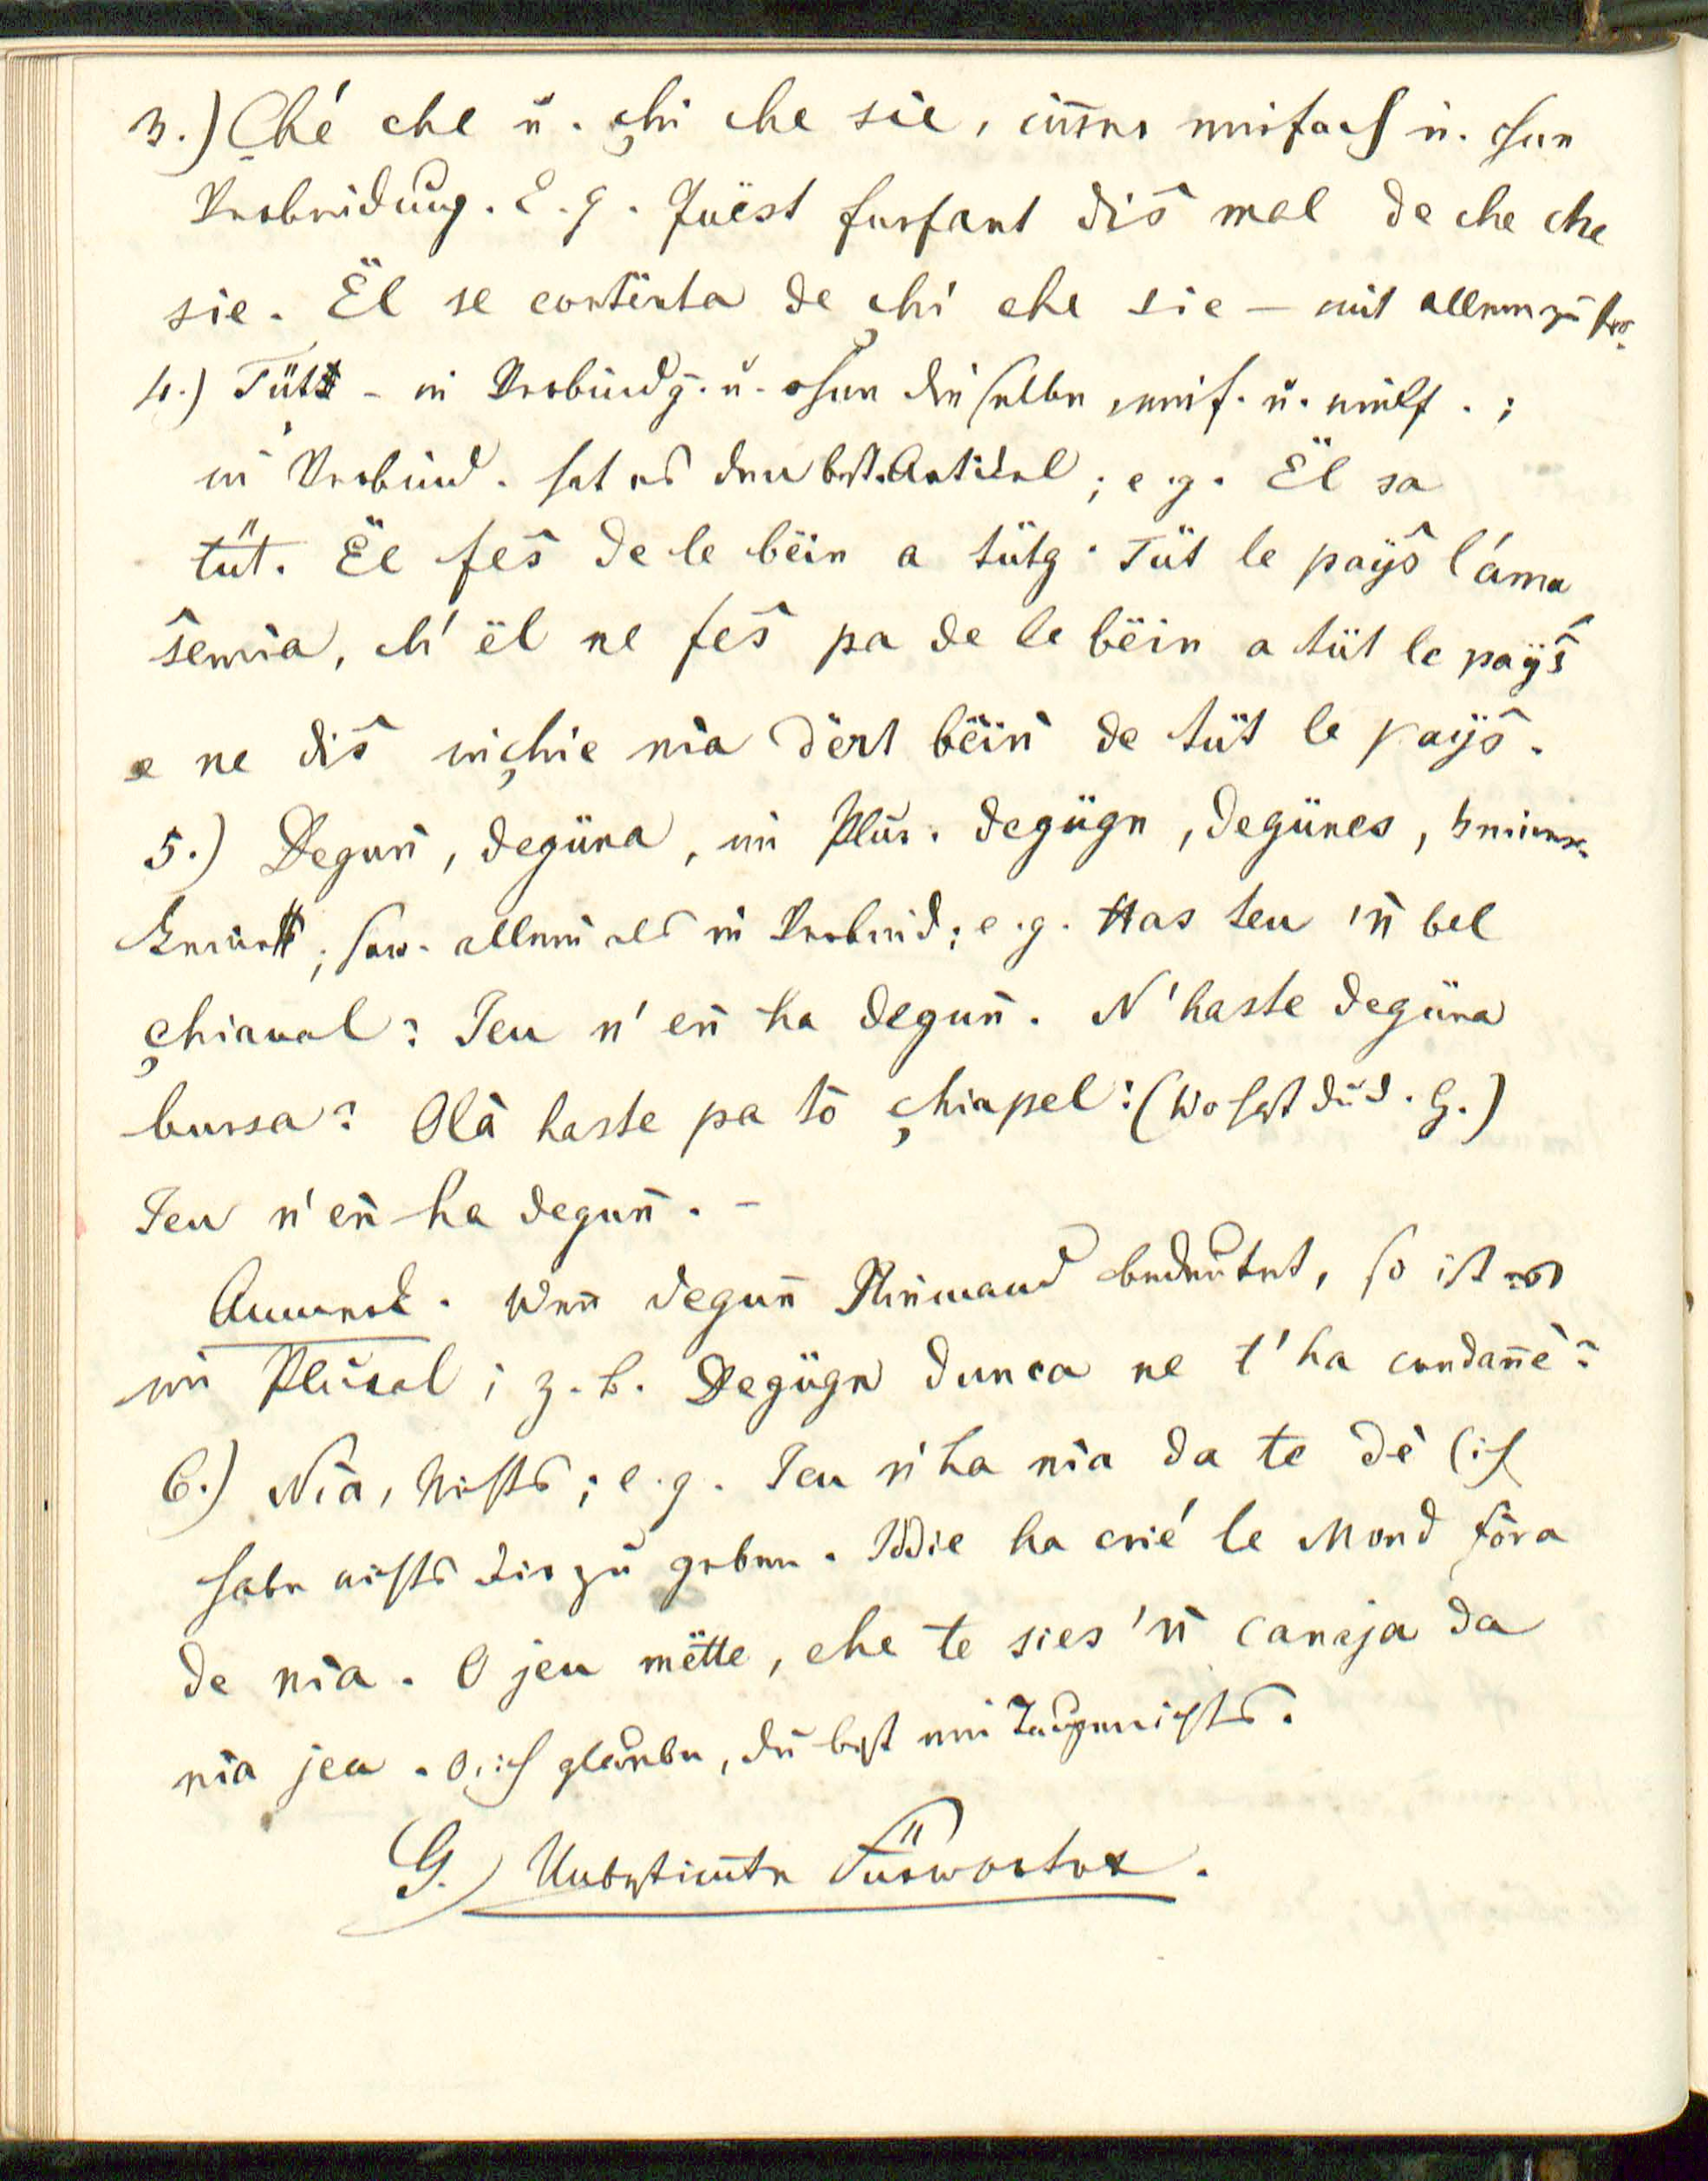 3.) Ché che u. çhi che sie, imer einfach u. ohne
Verbindung. E. g. Quëst furfant diŝ mal de che che
sie. Ël se contënta de çhi che sie – mit allem zufr.
4.) Tüt – in Verbindg. u. ohne dieselbe, einf. u. vielf.;
in Verbind. hat es den best. Artikel; e. g. Ël sa
tüt. Ël feŝ de le bëin a tütg. Tüt le payŝ l'áma
ŝemia, ch' ël ne feŝ pa de le bëin a tüt le payŝ
e ne diŝ inçhie nia dërt bëin de tüt le payŝ.
5.) Degun̄, degüna, im Plur. degügn, degünes, keiner.
keines; sow. allein als in Verbind; e. g. Has teu 'n̄ bel
çhiaval? Jeu n' en̄ ha degun̄. N'haste degüna
bursa? Olà haste pa tò çhiapel? (Wo hast du d. H.)
Jeu n' en̄ ha degun̄. –
Anmerk. Wen̄ degun̄ Niemand bedeutet, so ist es
im Plural; z. b. Degügn dunca ne t' ha condan̄è?
6.) Nia, Nichts; e. g. Jeu n' ha nia da te dè (ich
habe nichts dir zu geben. Iddie ha crié le Mond fòra
de nia. O jeu mëtte, che te sies 'n̄ canaja da
nia jeu. O, ich glaube, du bist ein Taugenichts.
G.) Unbestim̄te Fürwörter.